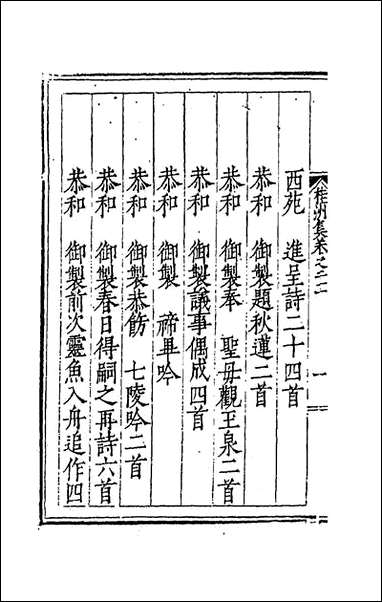 桂洲集卷之二
一
西苑　進呈詩二十四首
恭和　御製題秋蓮二首
恭和　御製奉　聖母觀玉泉二首
恭和　御製議事偶成四首
恭和　御製　禘再吟
恭和　御製恭飭　七陵吟二首
恭和　御製春日得嗣之再詩六首
恭和　御製前次靈魚入舟追作四